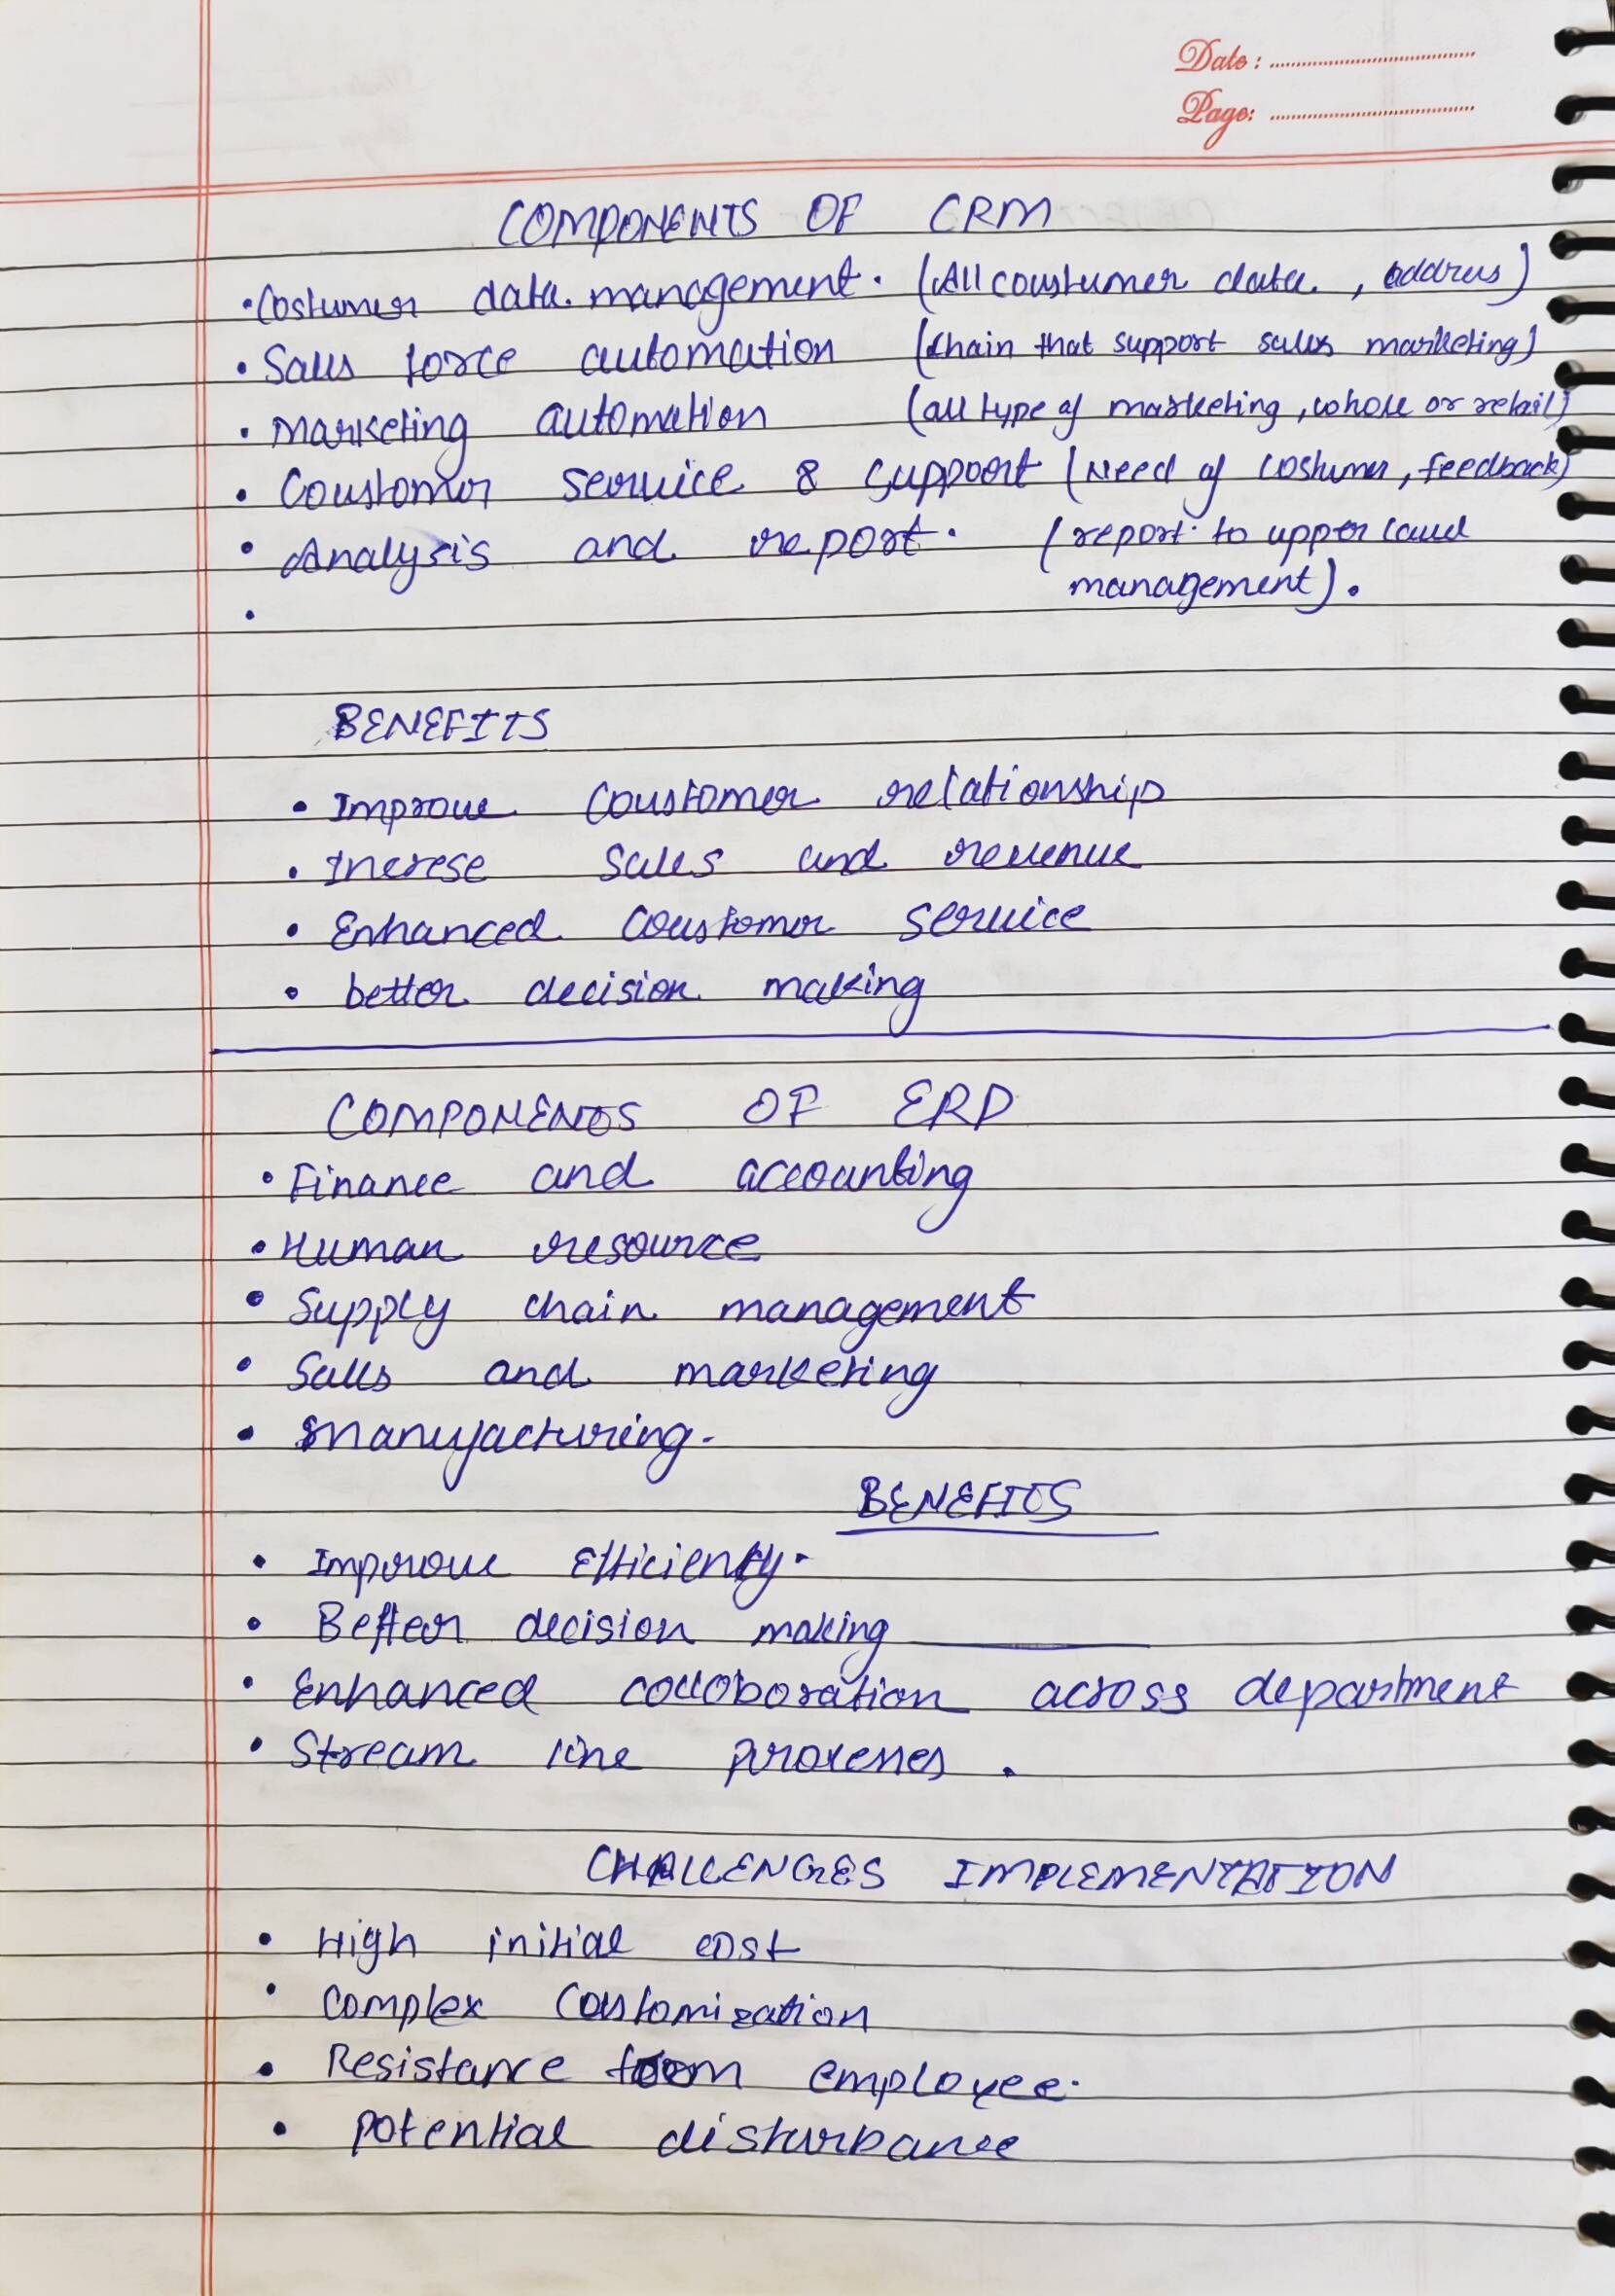 Date :
Page:
COMPONENTS OF CRM
• Costumer data management. (All coustumer data , address)
• Sales force automation (chain that support sales marketing)
• Marketing automation (all type of marketing, whole or retail)
• Coustomer service & support (Need of costumer, feedback)
• Analysis and report. (report to upper
management).
•
BENEFITS
• Improve Coustomer relationship
• Increse Sales and revenue
• Enhanced Coustomer service
• better decision making
COMPONENTS OF ERP
• Finance and accounting
• Human resource
• Supply chain management
• Sales and marketing
• Manufacturing.
BENEFITS
• Improve Efficiency.
• Better decision making
• Enhanced colloboration across department
• Stream line processes .
CHALLENGES IMPLEMENTATION
• High initial cost
• Complex Coustomization
• Resistance from employee.
• Potential disturbance